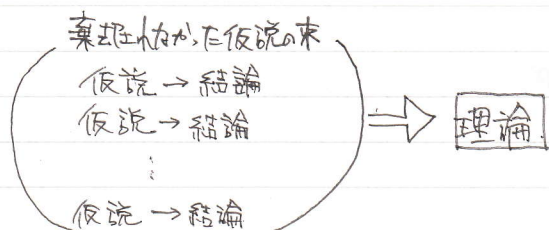 棄却されなかった仮説の束
仮説→結論
仮説→結論
⋮
仮説→結論
⇒ 理論